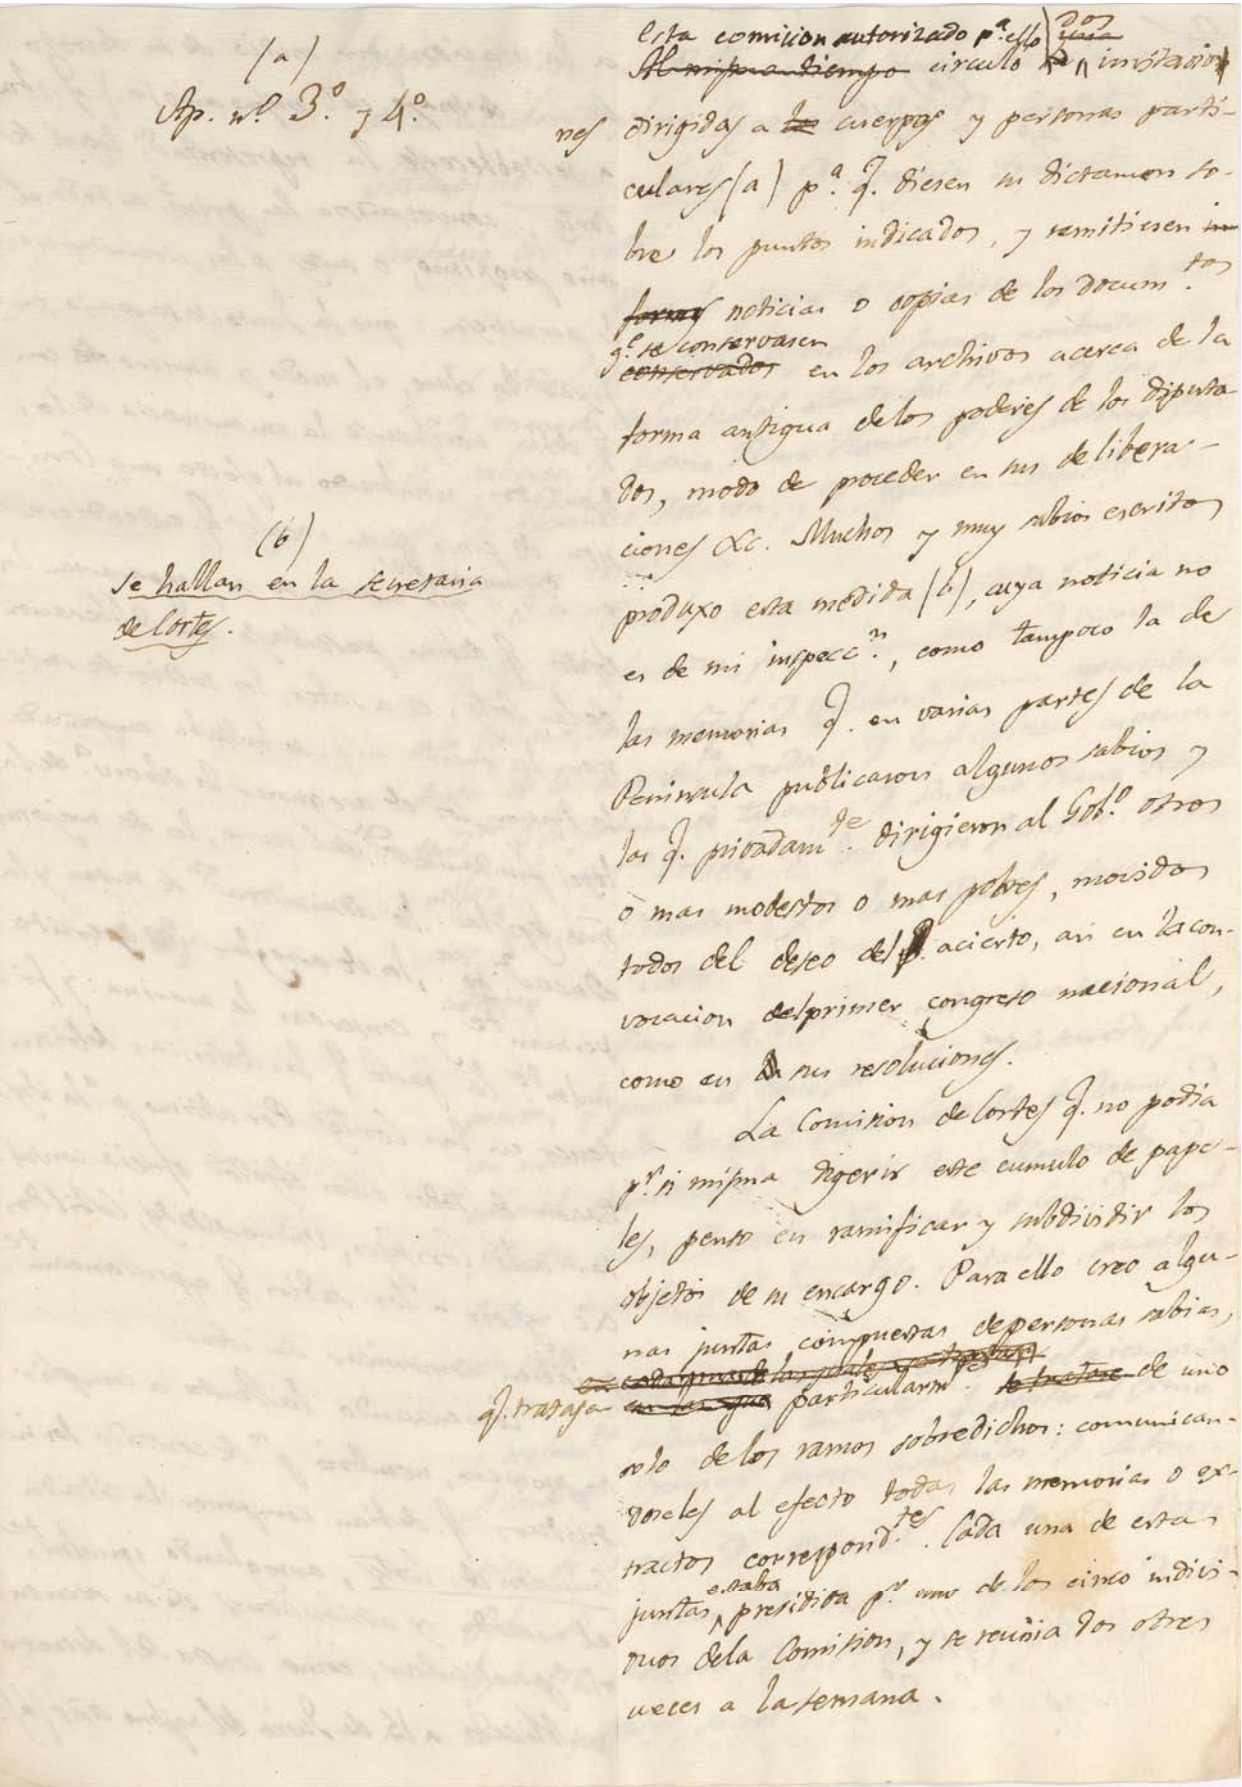 (a)
Ap. nº. 3º. y 4º.
(b)
Se hallan en la secretaria
de Cortes.
Esta comision autorizado pª. ello dos
Al mismo tiempo circuló invitacio
nes dirigidas a los cuerpos y personas parti-
culares (a) pª. q. diesen su dictamen so-
bre los puntos indicados, y remitiesen in
formes noticias o copias de los docum.tos
qe. se conservasen
conservados en los archivos acerca de la
forma antigua de los poderes de los diputa
dos, modo de proceder en sus delibera-
ciones &c. Muchos y muy sabios escritos
produxo esta medida (b), cuya noticia no
es de mi inspecc.n, como tampoco la de
las memorias q. en varias partes de la
Peninsula publicaron algunos sabios y
las q. privadam.te dirigieron al Gobº. otros
o mas modestos o mas pobres, movidos
todos del deseo del acierto, asi en la con-
vocacion del primer congreso nacional,
como en sus resoluciones.
La Comision de Cortes q. no podia
pr. si misma digerir este cumulo de pape-
les, penso en ramificar y subdividir los
objetos de su encargo. Para ello creo algu-
nas juntas compuestas de personas sabias,
en cada una de las quales se tratase
q. tratasen en las que particularm.te se tratase de uno
solo de los ramos sobredichos: comunican-
doseles al efecto todas las memorias o ex-
tractos correspond.tes. Cada una de estas
estaba
juntas presidida pr. uno de los cinco indivi-
duos de la Comision, y se reunia dos o tres
veces a la semana.